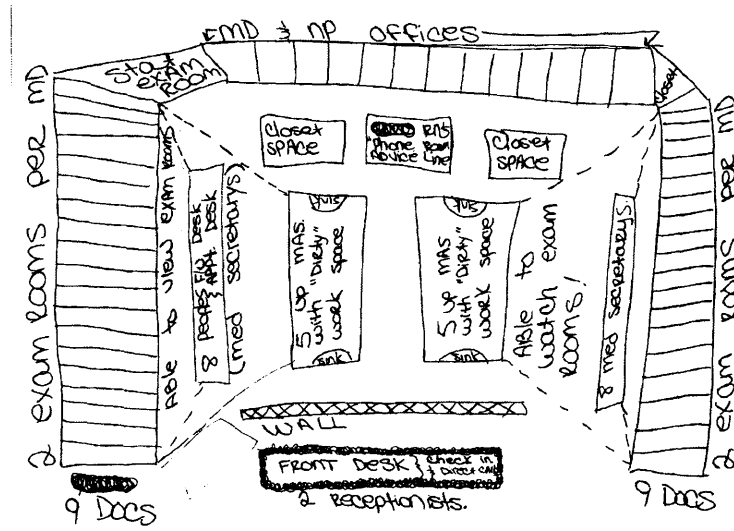 MD & NP OFFICES
Stat
Exam
Room
Closet
Closet
SPACE
RNS
Phone Room
ADVICE Line
Closet
SPACE
2 exam Rooms per MD
ABle to view exam Rooms
8 people F/U Desk
& Appt. Desk
(med secretarys)
5 up MAs.
with "Dirty"
work space
sink
5 up MAs
with "Dirty"
work space
sink
ABle to
watch exam
rooms!
8 med secretarys.
2 exam rooms per MD
WALL
FRONT DESK } Check in
2 Receptionists.
9 DOCS
9 DOCS